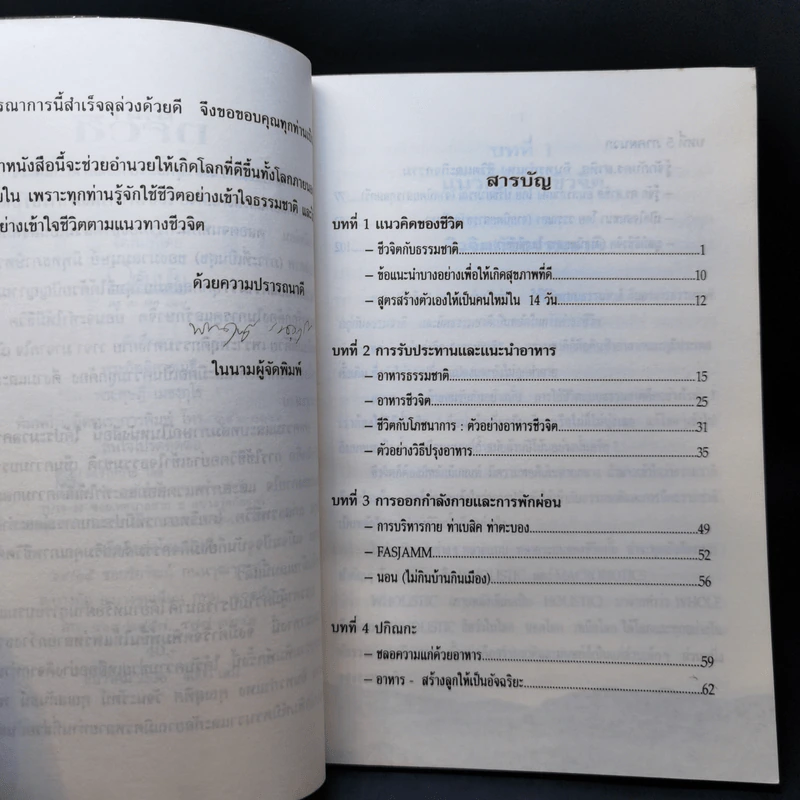 รณาการนี้สำเร็จลุล่วงด้วยดี จึงขอขอบคุณทุกท่าน
าหนังสือนี้จะช่วยอำนวยให้เกิดโลกที่ดีขึ้นทั้งโลกภายนอก
ยใน เพราะทุกท่านรู้จักใช้ชีวิตอย่างเข้าใจธรรมชาติ และ
ย่างเข้าใจชีวิตตามแนวทางชีวจิต
ด้วยความปรารถนาดี
ในนามผู้จัดพิมพ์
สารบัญ
บทที่ 1 แนวคิดของชีวิต
– ชีวจิตกับธรรมชาติ 1
– ข้อแนะนำบางอย่างเพื่อให้เกิดสุขภาพที่ดี 10
– สูตรสร้างตัวเองให้เป็นคนใหม่ใน 14 วัน 12
บทที่ 2 การรับประทานและแนะนำอาหาร
– อาหารธรรมชาติ 15
– อาหารชีวจิต 25
– ชีวิตกับโภชนาการ : ตัวอย่างอาหารชีวจิต 31
– ตัวอย่างวิธีปรุงอาหาร 35
บทที่ 3 การออกกำลังกายและการพักผ่อน
– การบริหารกาย ท่าเบสิค ท่าตะบอง 49
– FASJAMM 52
– นอน (ไม่กินบ้านกินเมือง) 56
บทที่ 4 ปกิณกะ
– ชลอความแก่ด้วยอาหาร 59
– อาหาร - สร้างลูกให้เป็นอัจฉริยะ 62